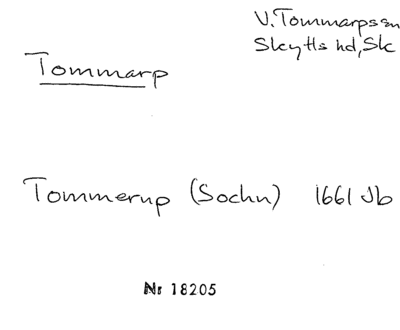 V. Tommarps sn
Skytts hd, Sk
Tommarp
Tommerup (Sochn) 1661 Jb
Nr 18205